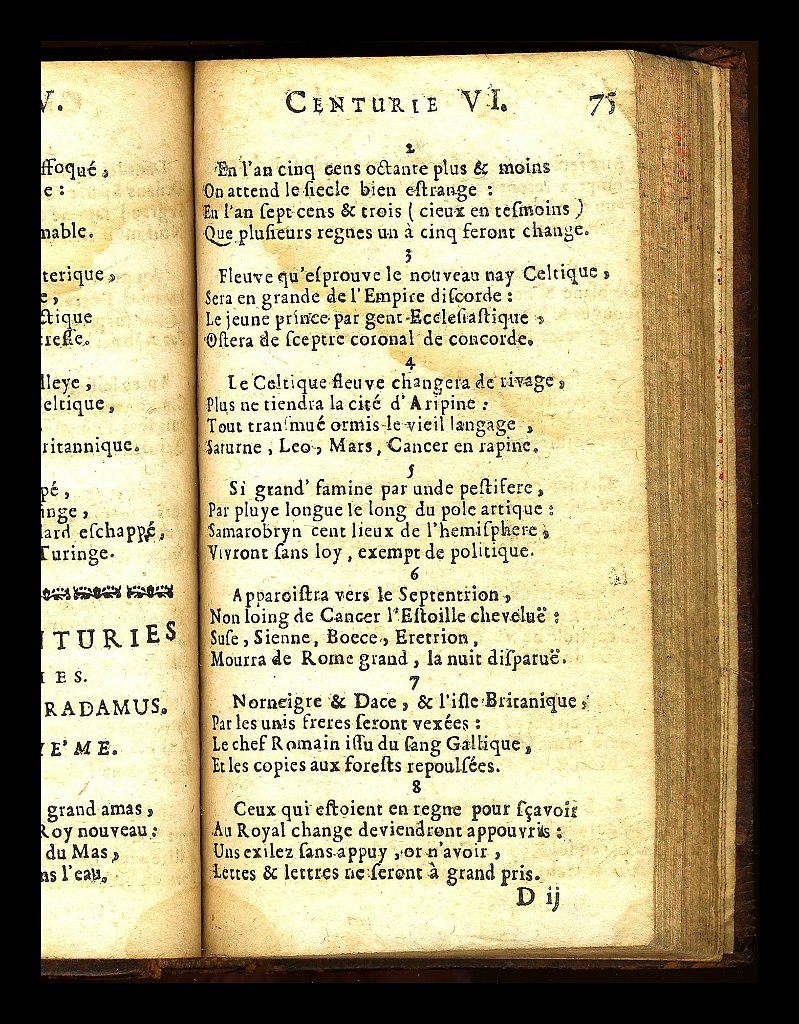 V.
ffoqué,
e :
nable.
terique,
e,
ctique
creſſe.
lleye,
eltique,
ritannique.
pé,
inge,
lard eſchappé,
Turinge.
NTURIES
IES.
RADAMUS.
IE'ME.
grand amas,
Roy nouveau :
du Mas,
ns l'eau.
CENTURIE VI. 75
2
En l'an cinq cens octante plus & moins
On attend le ſiecle bien eſtrange :
En l'an ſept cens & trois ( cieux en teſmoins )
Que pluſieurs regnes un à cinq feront change.
3
Fleuve qu'eſprouve le nouveau nay Celtique,
Sera en grande de l'Empire diſcorde :
Le jeune prince par gent Eccleſiaſtique,
Oſtera de ſceptre coronal de concorde.
4
Le Celtique fleuve changera de rivage,
Plus ne tiendra la cité d'Aripine :
Tout tranſmué ormis le vieil langage,
Saturne, Leo, Mars, Cancer en rapine.
5
Si grand' famine par unde peſtifere,
Par pluye longue le long du pole artique :
Samarobryn cent lieux de l'hemiſphere,
Vivront ſans loy, exempt de politique.
6
Apparoiſtra vers le Septentrion,
Non loing de Cancer l'Eſtoille cheveluë :
Suſe, Sienne, Boece, Eretrion,
Mourra de Rome grand, la nuit diſparuë.
7
Norneigre & Dace, & l'iſle Britanique,
Par les unis freres ſeront vexées :
Le chef Romain iſſu du ſang Gallique,
Et les copies aux foreſts repoulſées.
8
Ceux qui eſtoient en regne pour ſçavoir
Au Royal change deviendront appouvris :
Uns exilez ſans appuy, or n'avoir,
Lettes & lettres ne ſeront à grand pris.
D ij